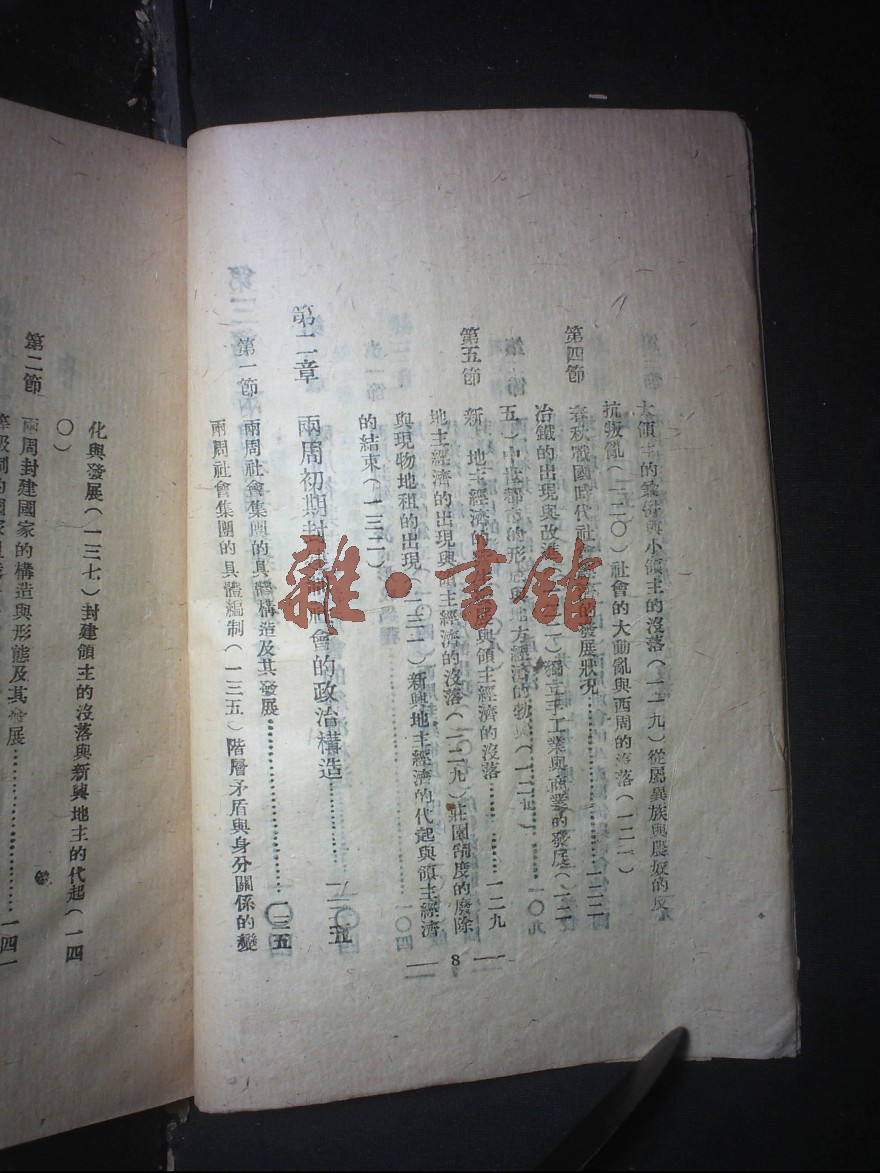 大領主的兼併與小領主的沒落(一一九)從屬異族與農奴的反
抗叛亂(一二〇)社會的大動亂與西周的沒落(一二一)
第四節 春秋戰國時代社會經濟的發展狀況
冶鐵的出現與改進 獨立手工業與商業的發展(一二
五)中世都市的形成與地方經濟的勃興
第五節 新 地主經濟的 與領主經濟的沒落……一二九
地主經濟的出現與領主經濟的沒落(一二九)莊園制度的廢除
與現物地租的出現(一三一)新興地主經濟的代起與領主經濟
的結束(一三二)
第二章 兩周初期封建 社會的政治構造……一三五
第一節 兩周社會集團的具體構造及其發展……一三五
兩周社會集團的具體編制(一三五)階層矛盾與身分關係的變
8
化與發展(一三七)封建領主的沒落與新興地主的代起(一四
〇)
第二節 兩周封建國家的構造與形態及其發展……一四一
雜·書館